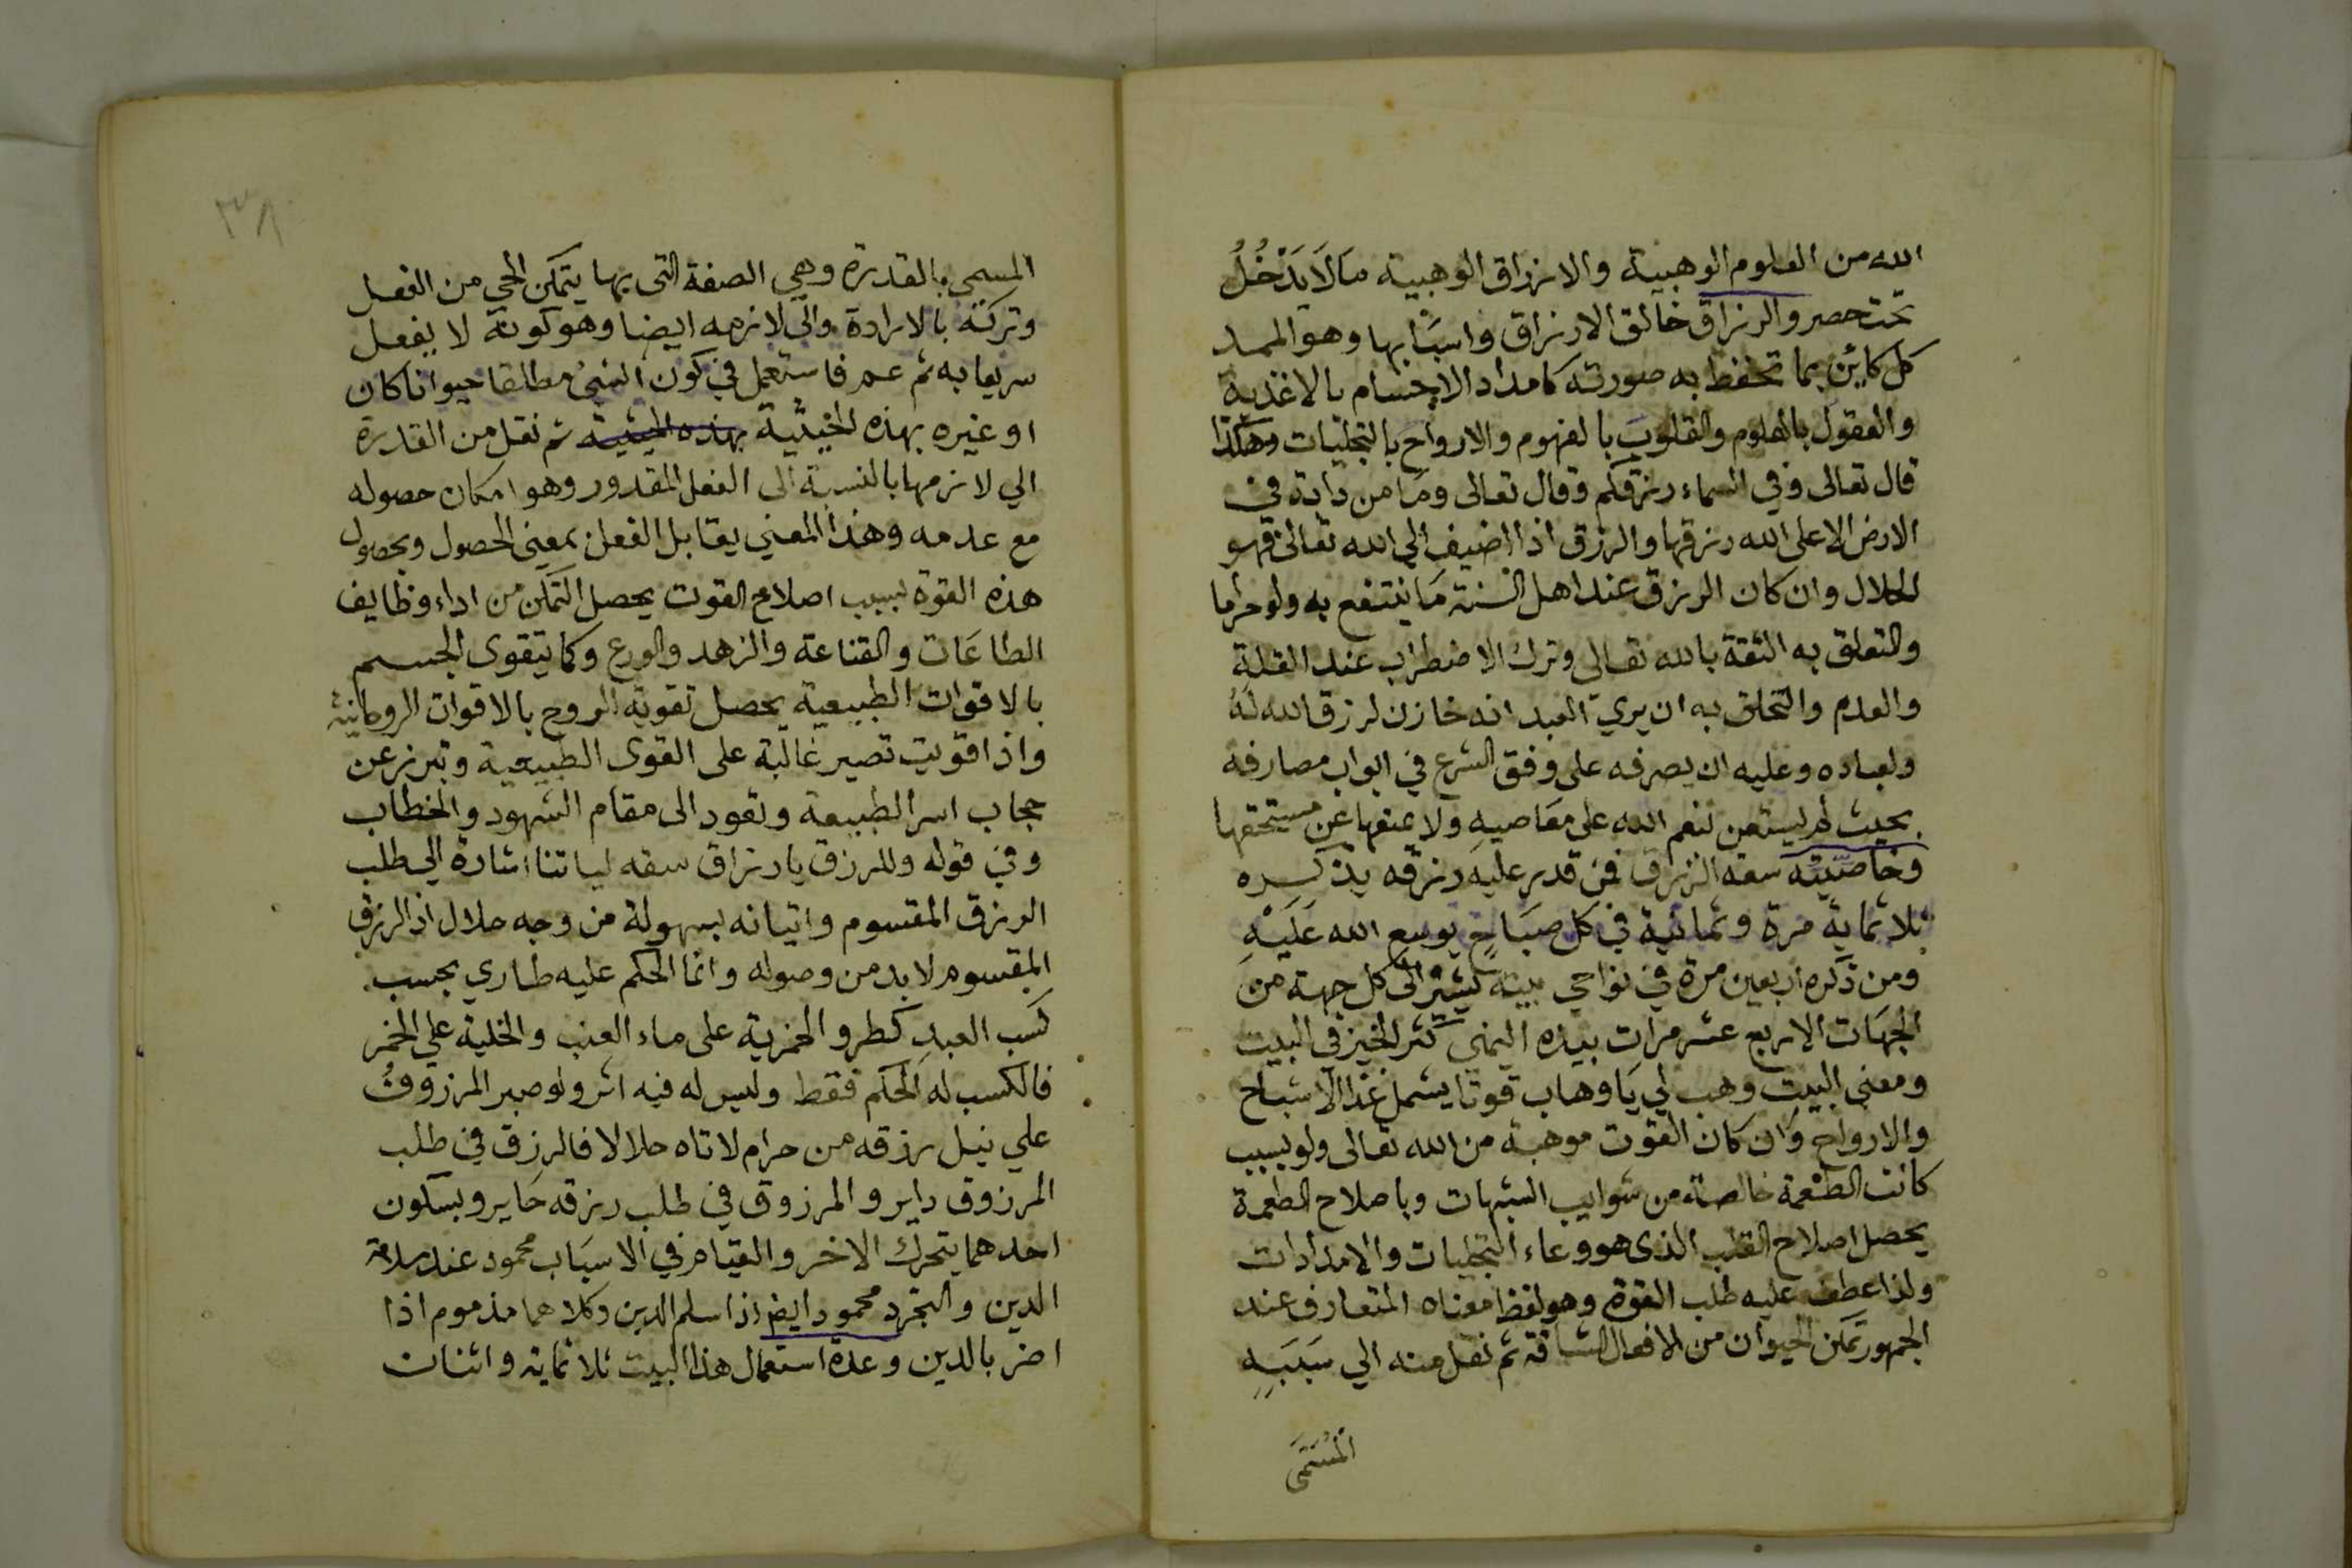 الله من العلوم الوهبية والارزاق الوهبية ما لَا يَدْخُلُ
تحت حصر والرزاق خالق الارزاق واسبابها وهو الممد
كل كائن بما تحفظ به صورته كامداد الاجسام بالاغذية
والعقول بالعلوم والقلوب بالفهوم والارواح بالتجليات وهكذا
قال تعالى وفي السماء رزقكم وقال تعالى وما من دابة في
الارض الا على الله رزقها والرزق اذا اضيف الي الله تعالى فهو
الحلال وان كان الرزق عند اهل السنة ما ينتفع به ولو حراما
والتعلق به الثقة بالله تعالى وترك الاضطراب عند القلة
والعدم والتخلق به ان يري العبد انه خازن لرزق الله لَهُ
ولعباده وعليه ان يصرفه على وفق الشرع في ابواب مصارفه
بحيث لم يستعن بنعم الله على معاصيه ولا يمنعها عن مستحقها
وخاصيته سعة الرزق فمن قدر عليه رزقه يذكره
ثلاثماية مرة وثمانية في كل صباح يوسع الله عَلَيْهِ
ومن ذكره اربعين مرة في نواحي بيته يشير الى كل جهة من
الجهات الاربع عشر مرات بيده اليمني كثر الخير في البيت
ومعني البيت وهب لي يا وهاب قوتا يشمل غذا الاشباح
والارواح وان كان القوت موهبة من الله تعالى ولو بسبب
كانت الطعمة خالصة من شوايب الشبهات وباصلاح الطعمة
يحصل اصلاح القلب الذى هو وعاء التجليات والامدادات
ولذا عطف عليه طلب القوة وهو لفظ معناه المتعارف عند
الجمهور تمكن الحيوان من الافعال الشاقة ثم نقل منه الي سَبَبِهِ
المُسَمَّى
٣٨
المسمي بالقدرة وهي الصفة التى بها يتمكن الحي من الفعل
وتركه بالارادة والي لازمه ايضا وهو كونه لا يفعل
سريعا به ثم عمم فاستعمل في كون الشئ مطلقا حيوانا كان
او غيره بهذه الحيثية بهذه الحيثية ثم نقل من القدرة
الي لازمها بالنسبة الى الفعل المقدور وهو امكان حصوله
مع عدمه وهذا المعني يقابل الفعل بمعنى الحصول وبحصول
هذه القوة بسبب اصلاح القوت يحصل التمكن من اداء وظايف
الطاعات والقناعة والزهد والورع وكما يتقوى الجسم
بالاقوات الطبيعية يحصل تقوية الروح بالاقوات الروحانية
واذا قويت تصير غالبة على القوى الطبيعية وتبرز عن
حجاب اسر الطبيعة وتعود الى مقام الشهود والخطاب
وفي قوله وللرزق يا رزاق سقه لياتنا اشارة الي طلب
الرزق المقسوم واتيانه بسهولة من وجه حلال اذ الرزق
المقسوم لا بد من وصوله وانما الحكم عليه طاري بحسب
كسب العبد كطرو الخمرية على ماء العنب والخلية علي الخمر
فالكسب له الحكم فقط وليس له فيه اثر ولو صبر المرزوقُ
علي نيل رزقه من حرام لاتاه حلالا فالرزق في طلب
المرزوق داير والمرزوق في طلب رزقه حاير وبسكون
احدهما يتحرك الاخر والقيام في الاسباب محمود عند سلامة
الدين والتجرد محمود ايض اذا سلم الدين وكلاهما مذموم اذا
اضر بالدين وعدة استعمال هذا البيت ثلاثماية واثنان